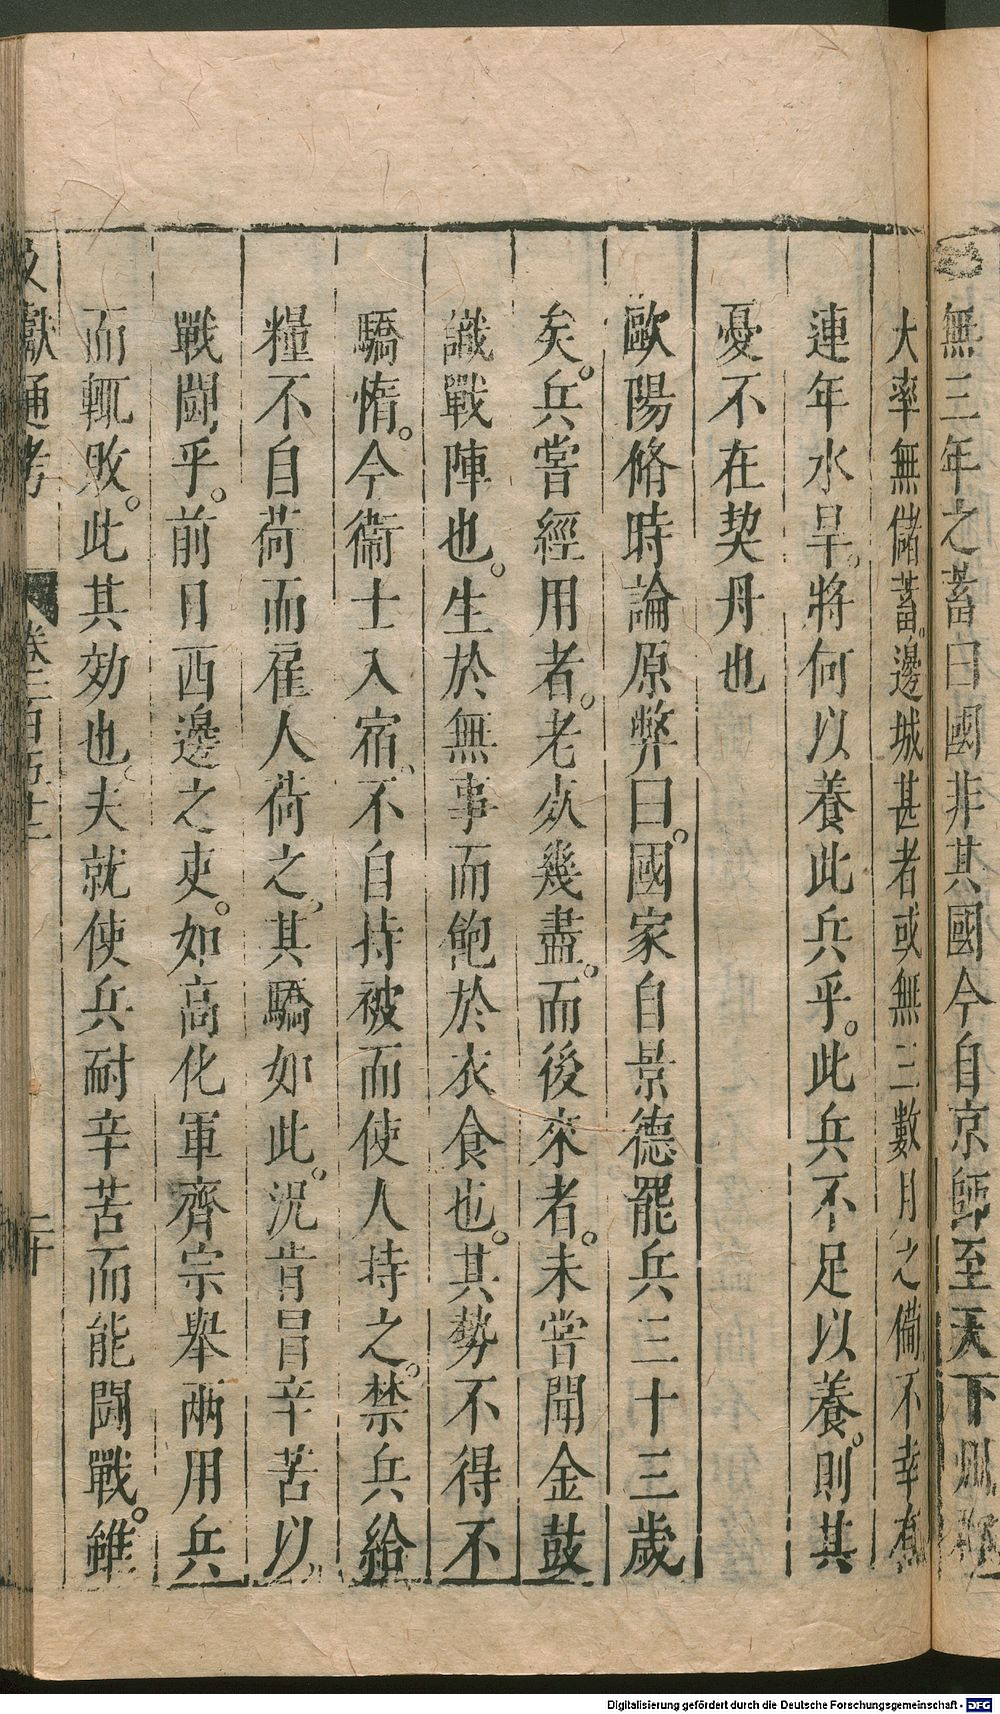 無三年之蓄曰國非其國今自京師至天下州
大率無儲蓄。邊城甚者或無三數月之備不幸有
連年水旱。將何以養此兵乎。此兵不足以養。則其
憂不在契丹也
歐陽脩時論原弊曰。國家自景德罷兵三十三歲
矣。兵嘗經用者。老死幾盡。而後來者。未嘗聞金鼓
識戰陣也。生於無事而飽於衣食也。其勢不得不
驕惰。今衞士入宿、不自持被而使人持之。禁兵給
糧不自荷而雇人荷之、其驕如此。況肯冒辛苦以
戰鬪乎。前日西邊之吏。如高化軍齊宗舉兩用兵
而輒敗。此其効也。夫就使兵耐辛苦而能鬪戰。雖
文獻通考 卷之百五十二 二十
Digitalisierung gefördert durch die Deutsche Forschungsgemeinschaft - DFG